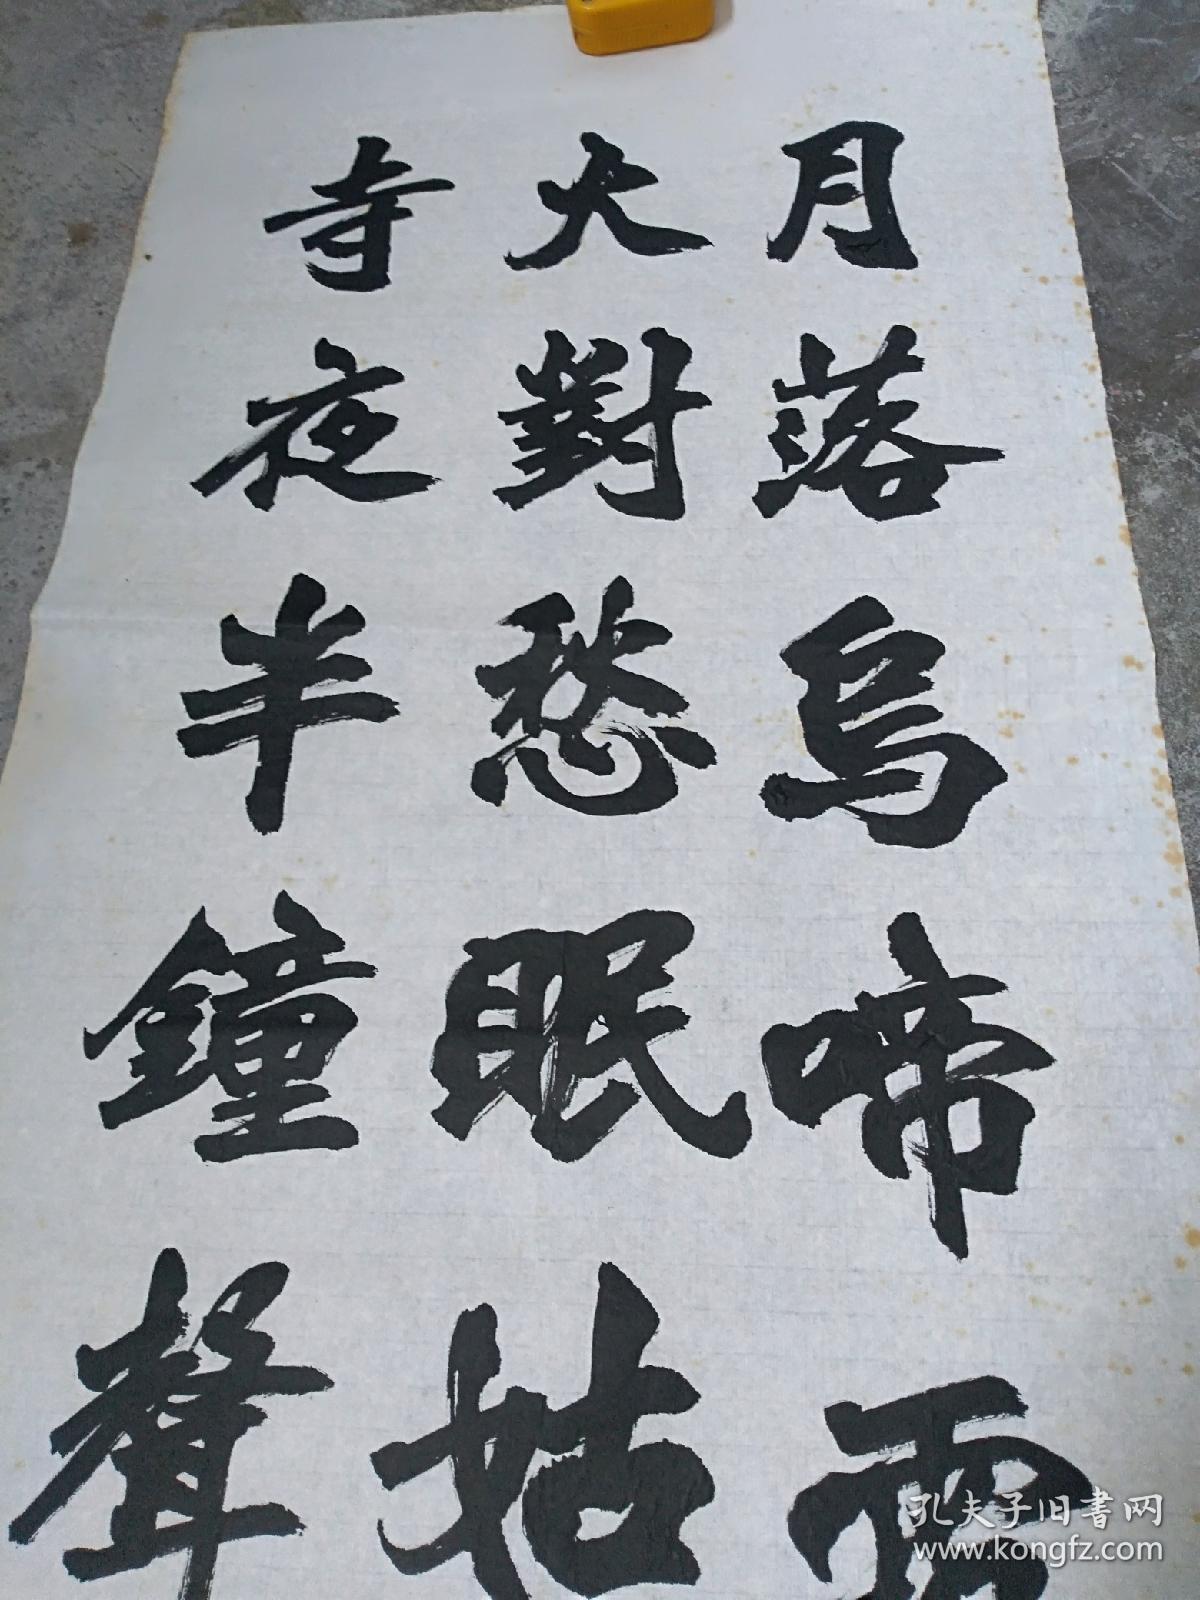 月落烏啼
火對愁眠姑
寺夜半鐘聲
孔夫子旧書网
www.kongfz.com